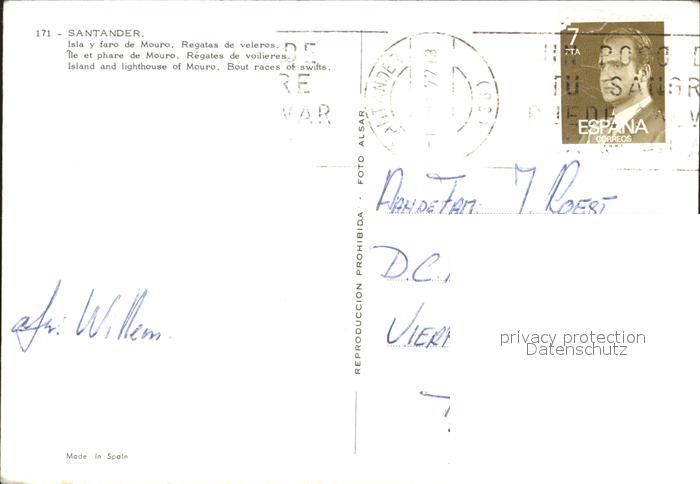 171 - SANTANDER.
Isla y faro de Mouro. Regatas de veleros.
Île et phare de Mouro. Régates de voilieres.
Island and lighthouse of Mouro. Bout races of swifts.
7
PTA
ESPAÑA
CORREOS
F.N.M.T.
SANTANDER
77
DE
RE
VAR
UN POCO D
TU SANGR
PUEDE
REPRODUCCION PROHIBIDA - FOTO ALSAR
AAN DE FAM. J. ROEST
D.C.
VIER
afz: Willem.
privacy protection
Datenschutz
Made in Spain